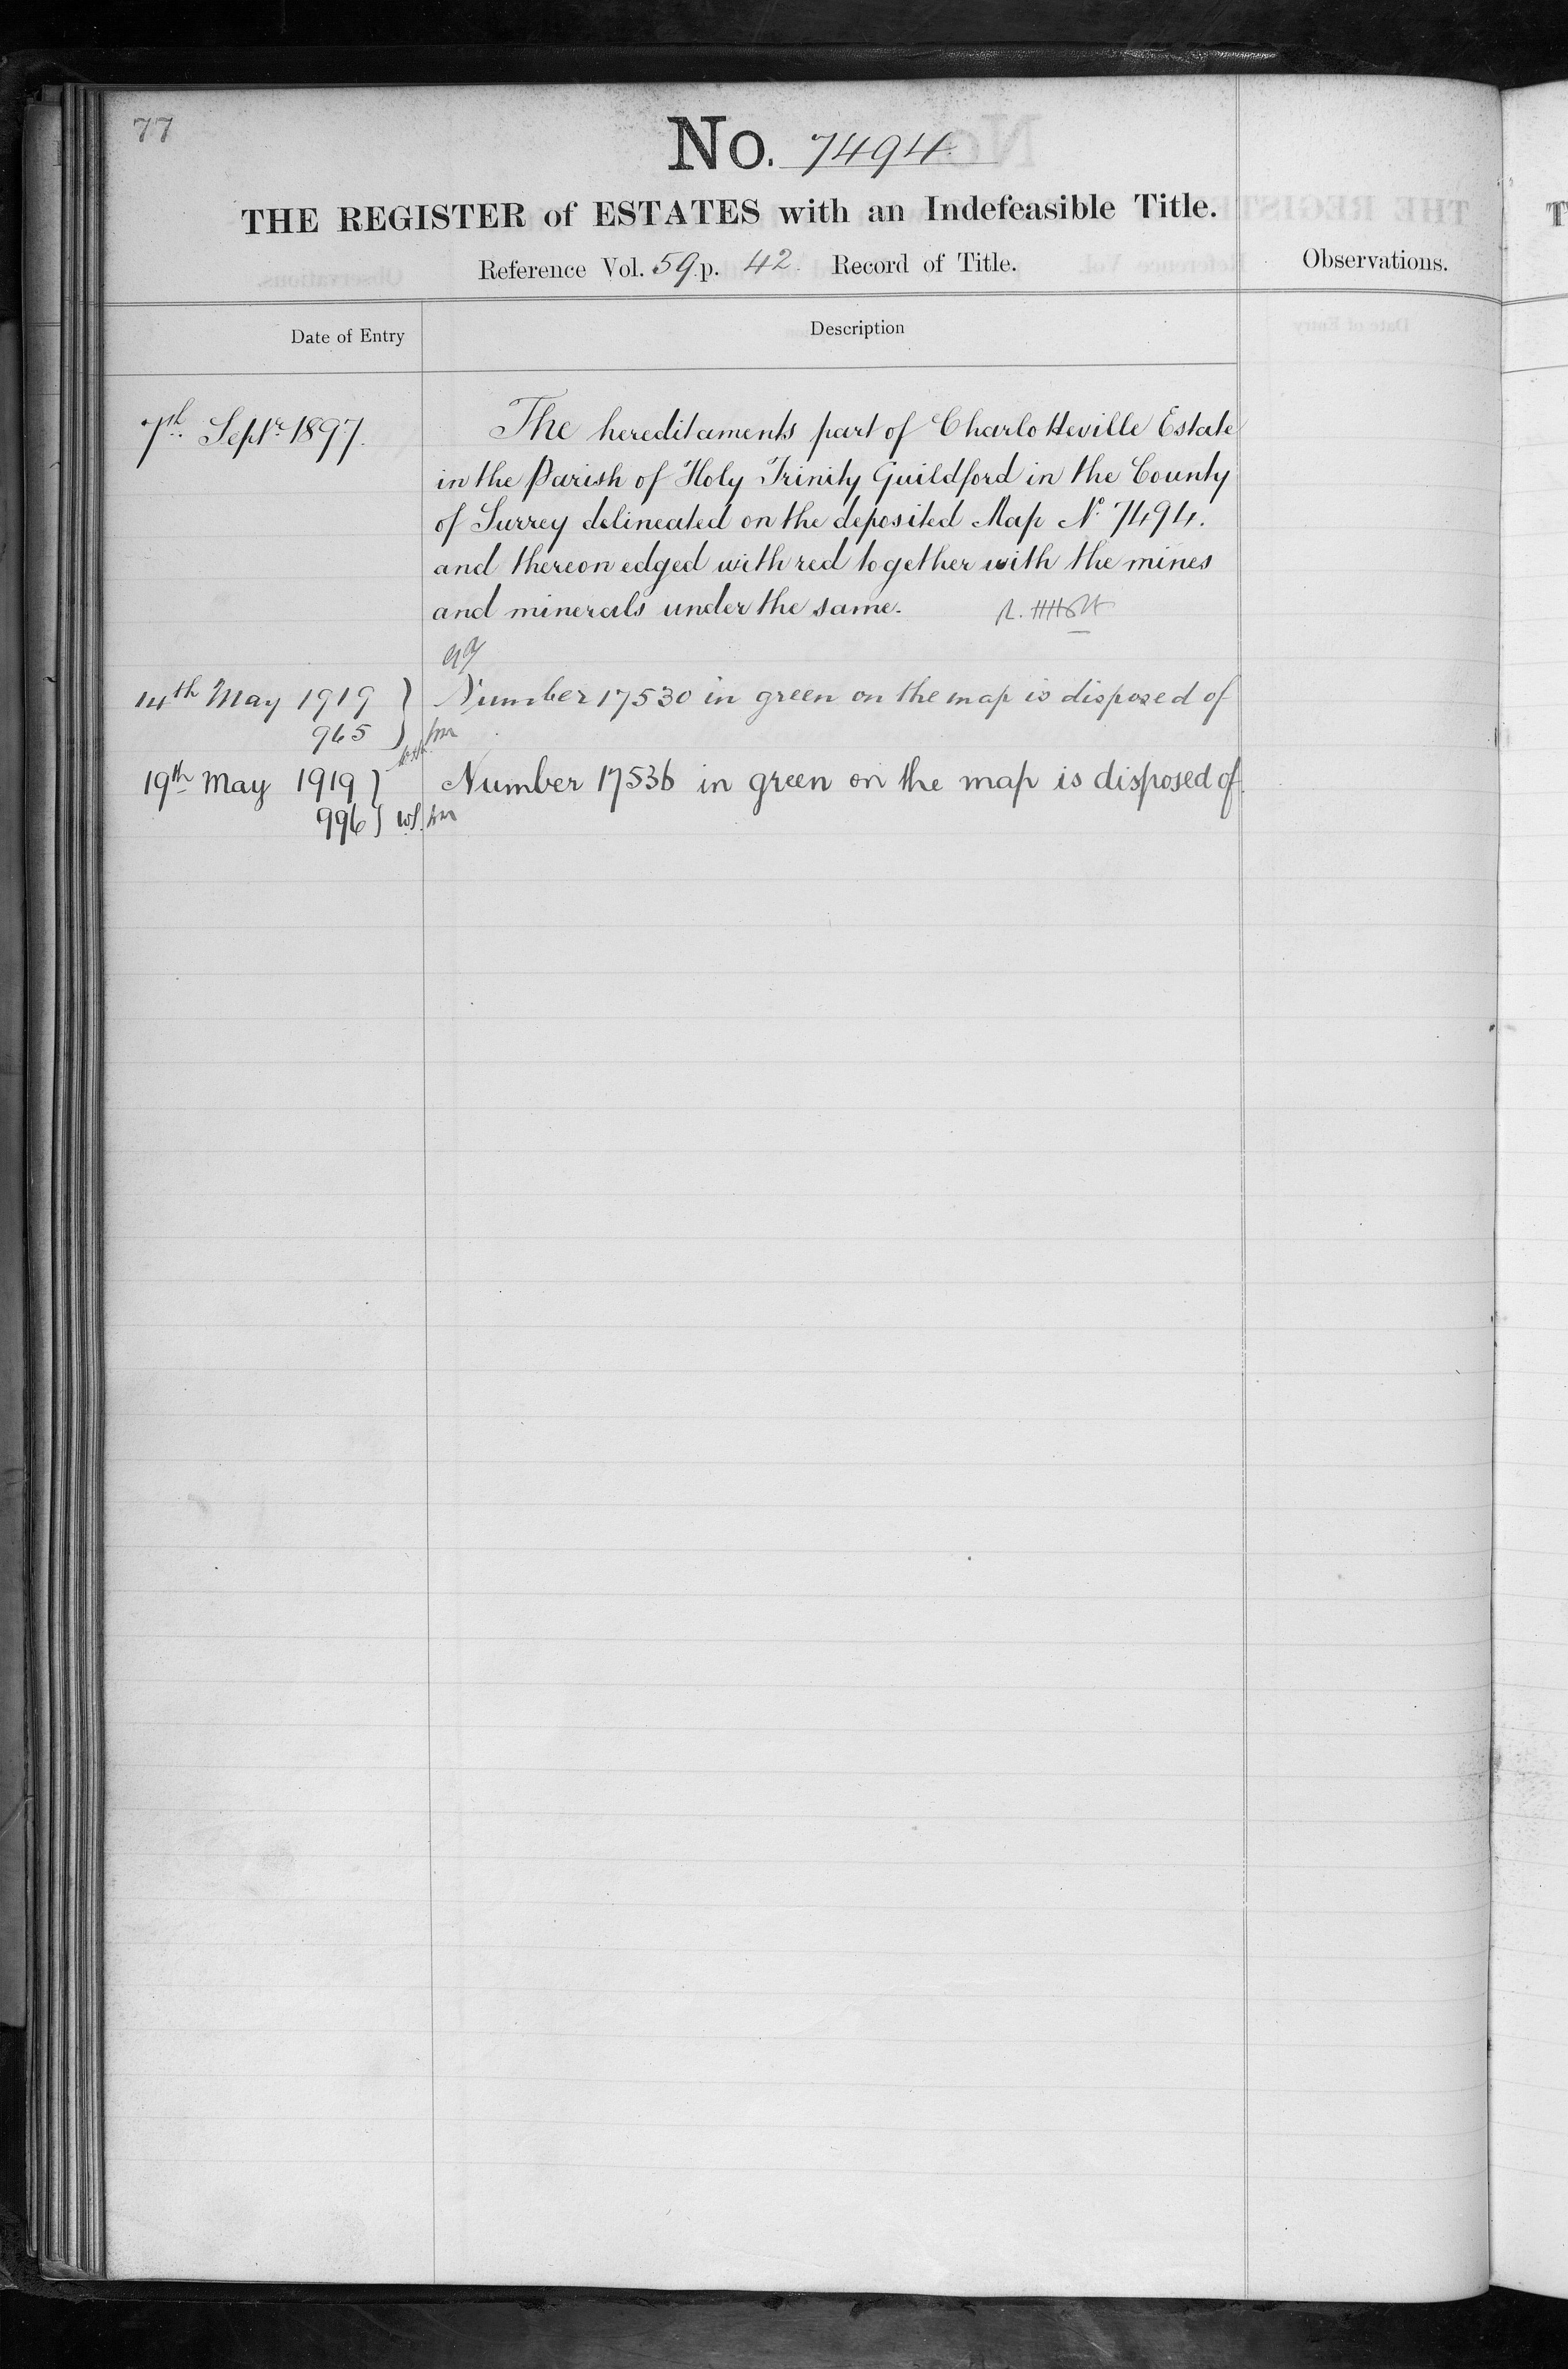 77
No. 7494.
THE REGISTER of ESTATES with an Indefeasible Title.
Reference Vol. 59. p. 42. Record of Title.
Observations.
Date of Entry
Description
7th Septr 1897.
The hereditaments part of Charlotteville Estate
in the Parish of Holy Trinity Guildford in the County
of Surrey delineated on the deposited Map No. 7494.
and thereon edged with red together with the mines
and minerals under the same.
14th May 1919 } Number 17530 in green on the map is disposed of
965 }
19th May 1919 } Number 17536 in green on the map is disposed of.
996 }